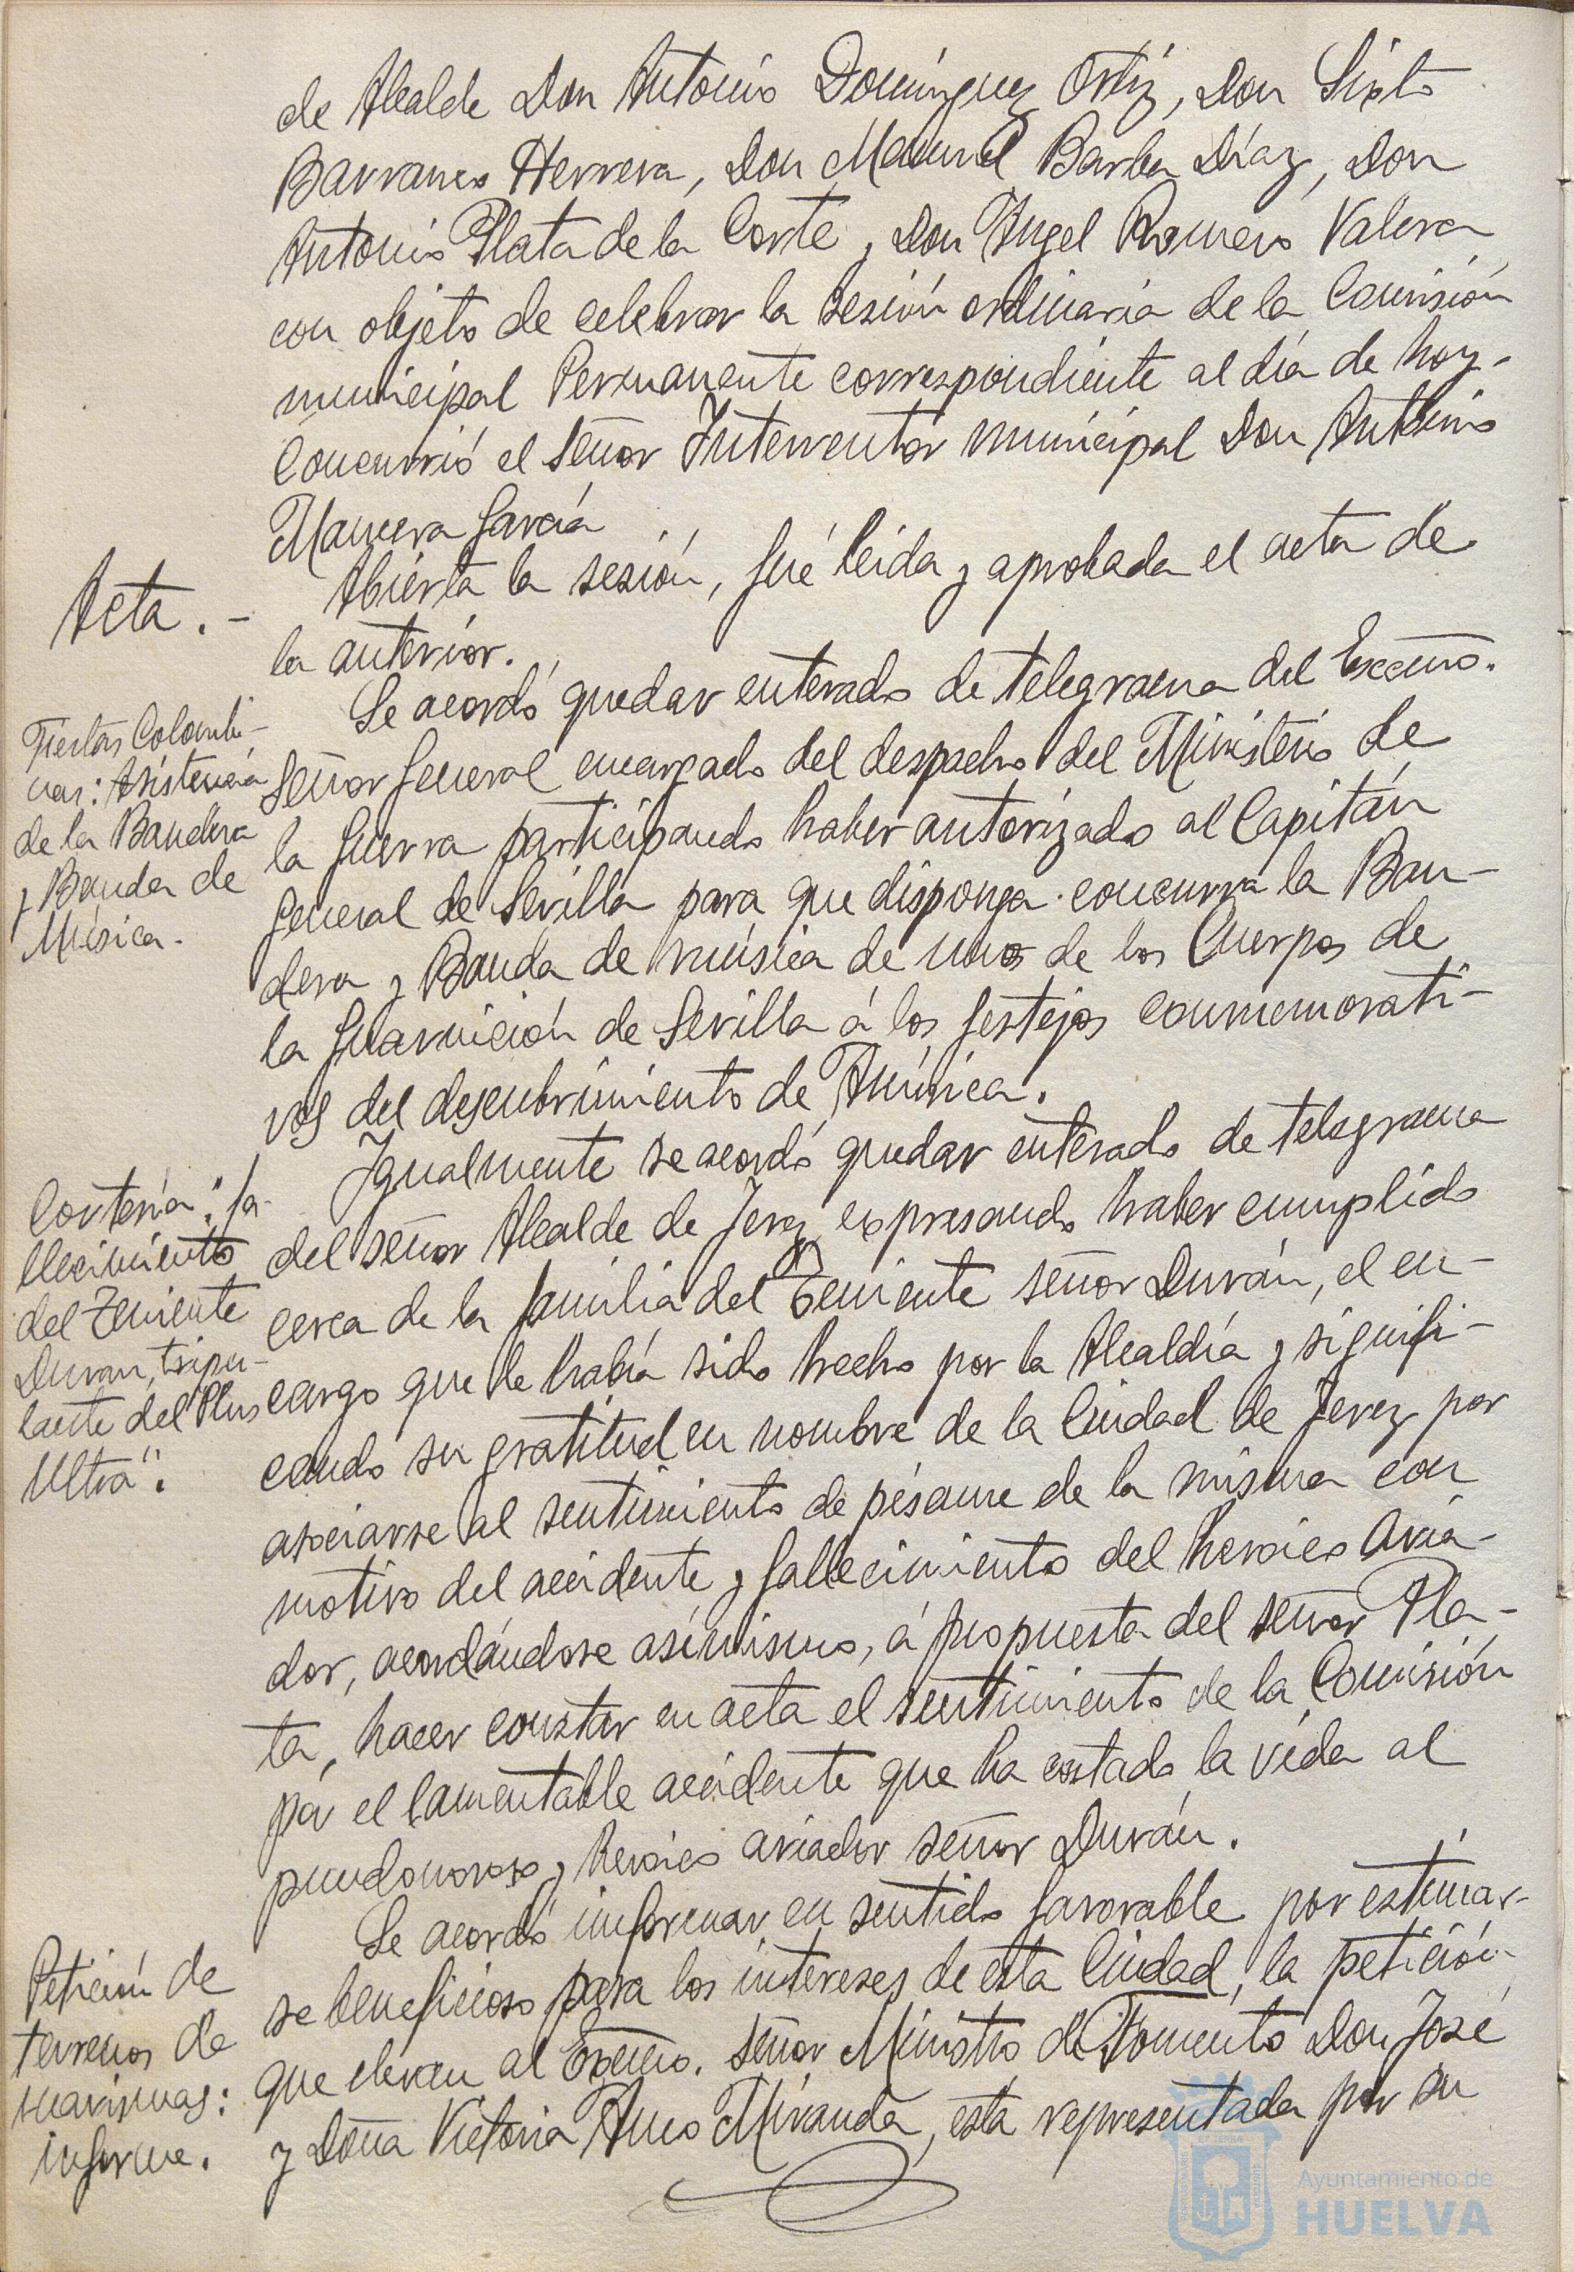 de Alcalde Don Antonio Domínguez Ortiz, Don Sixto
Barranco Herrera, Don Manuel Barba Díaz, Don
Antonio Plata de la Corte y Don Angel Romero Valera
con objeto de celebrar la sesión ordinaria de la Comisión
municipal Permanente correspondiente al día de hoy.-
Concurrió el señor Interventor municipal Don Antonio
Mancera García
Acta.-
Abierta la sesión, fué leida y aprobada el acta de
la anterior.
Fiestas Colombi-
nas: Asistencia
de la Bandera
y Banda de
Música.-
Se acordó quedar enterado de telegrama del Excmo.
Señor General encargado del despacho del Ministerio de
la Guerra participando haber autorizado al Capitán
General de Sevilla para que disponga concurra la Ban-
dera y Banda de música de uno de los Cuerpos de
la Guarnición de Sevilla á los festejos conmemorati-
vos del descubrimiento de América.
Cortesía: fa-
llecimiento
del Teniente
Duran, tripu-
lante del "Plus
Ultra".
Igualmente se acordó quedar enterado de telegrama
del señor Alcalde de Jerez expresando haber cumplido
cerca de la familia del Teniente señor Durán, el en-
cargo que le había sido hecho por la Alcaldía y signifi-
cando su gratitud en nombre de la Ciudad de Jerez por
asociarse al sentimiento de pésame de la misma con
motivo del accidente y fallecimiento del heroico avia-
dor, acordándose asímismo, á propuesta del señor Pla-
ta, hacer constar en acta el sentimiento de la Comisión
por el lamentable accidente que ha costado la vida al
pundonoroso y heroico aviador señor Durán.
Petición de
terrenos de
marismas:
informe.
Se acordó informar en sentido favorable por estimar-
se beneficioso para los intereses de esta Ciudad, la petición
que elevan al Excmo. señor Ministro de Fomento Don José
y Doña Victoria Amo Miranda, esta representada por su
Ayuntamiento de
HUELVA